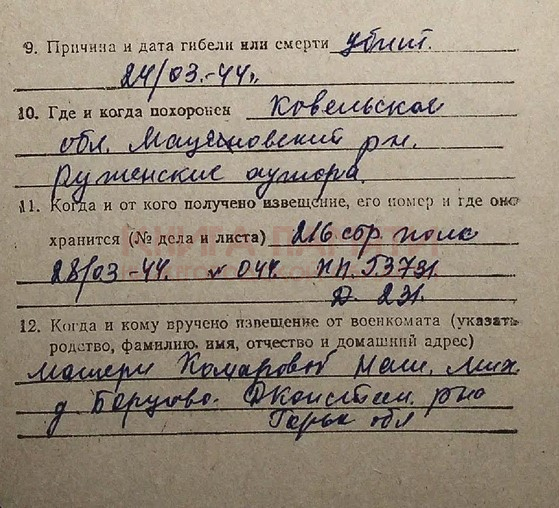 9. Причина и дата гибели или смерти убит.
24/03.-44г.
10. Где и когда похоронен Ковельское
обл. Мациновский рн.
Руженские хутора.
11. Когда и от кого получено извещение, его номер и где оно
хранится (№ дела и листа) 216 сбр полк
28/03-44. № 044. НП. Г3731.
Д. 231.
12. Когда и кому вручено извещение от военкомата (указать
родство, фамилию, имя, отчество и домашний адрес)
матери Комаровой Наш. Мих.
д. Борцово. ДКонстан. рно
Горьк обл